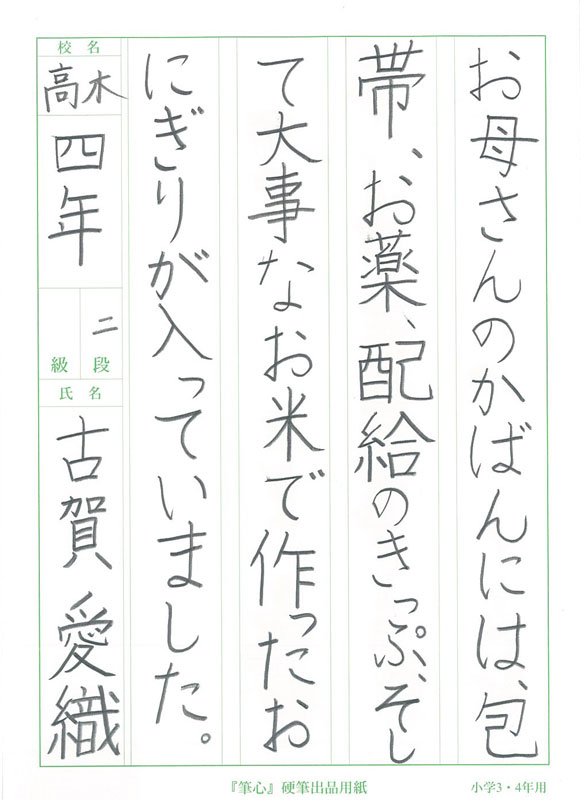 お母さんのかばんには、包
帯、お薬、配給のきっぷ、そし
て大事なお米で作ったお
にぎりが入っていました。
校名
高木
四年
二
級 段
氏名
古賀 愛織
『筆心』硬筆出品用紙
小学3・4年用